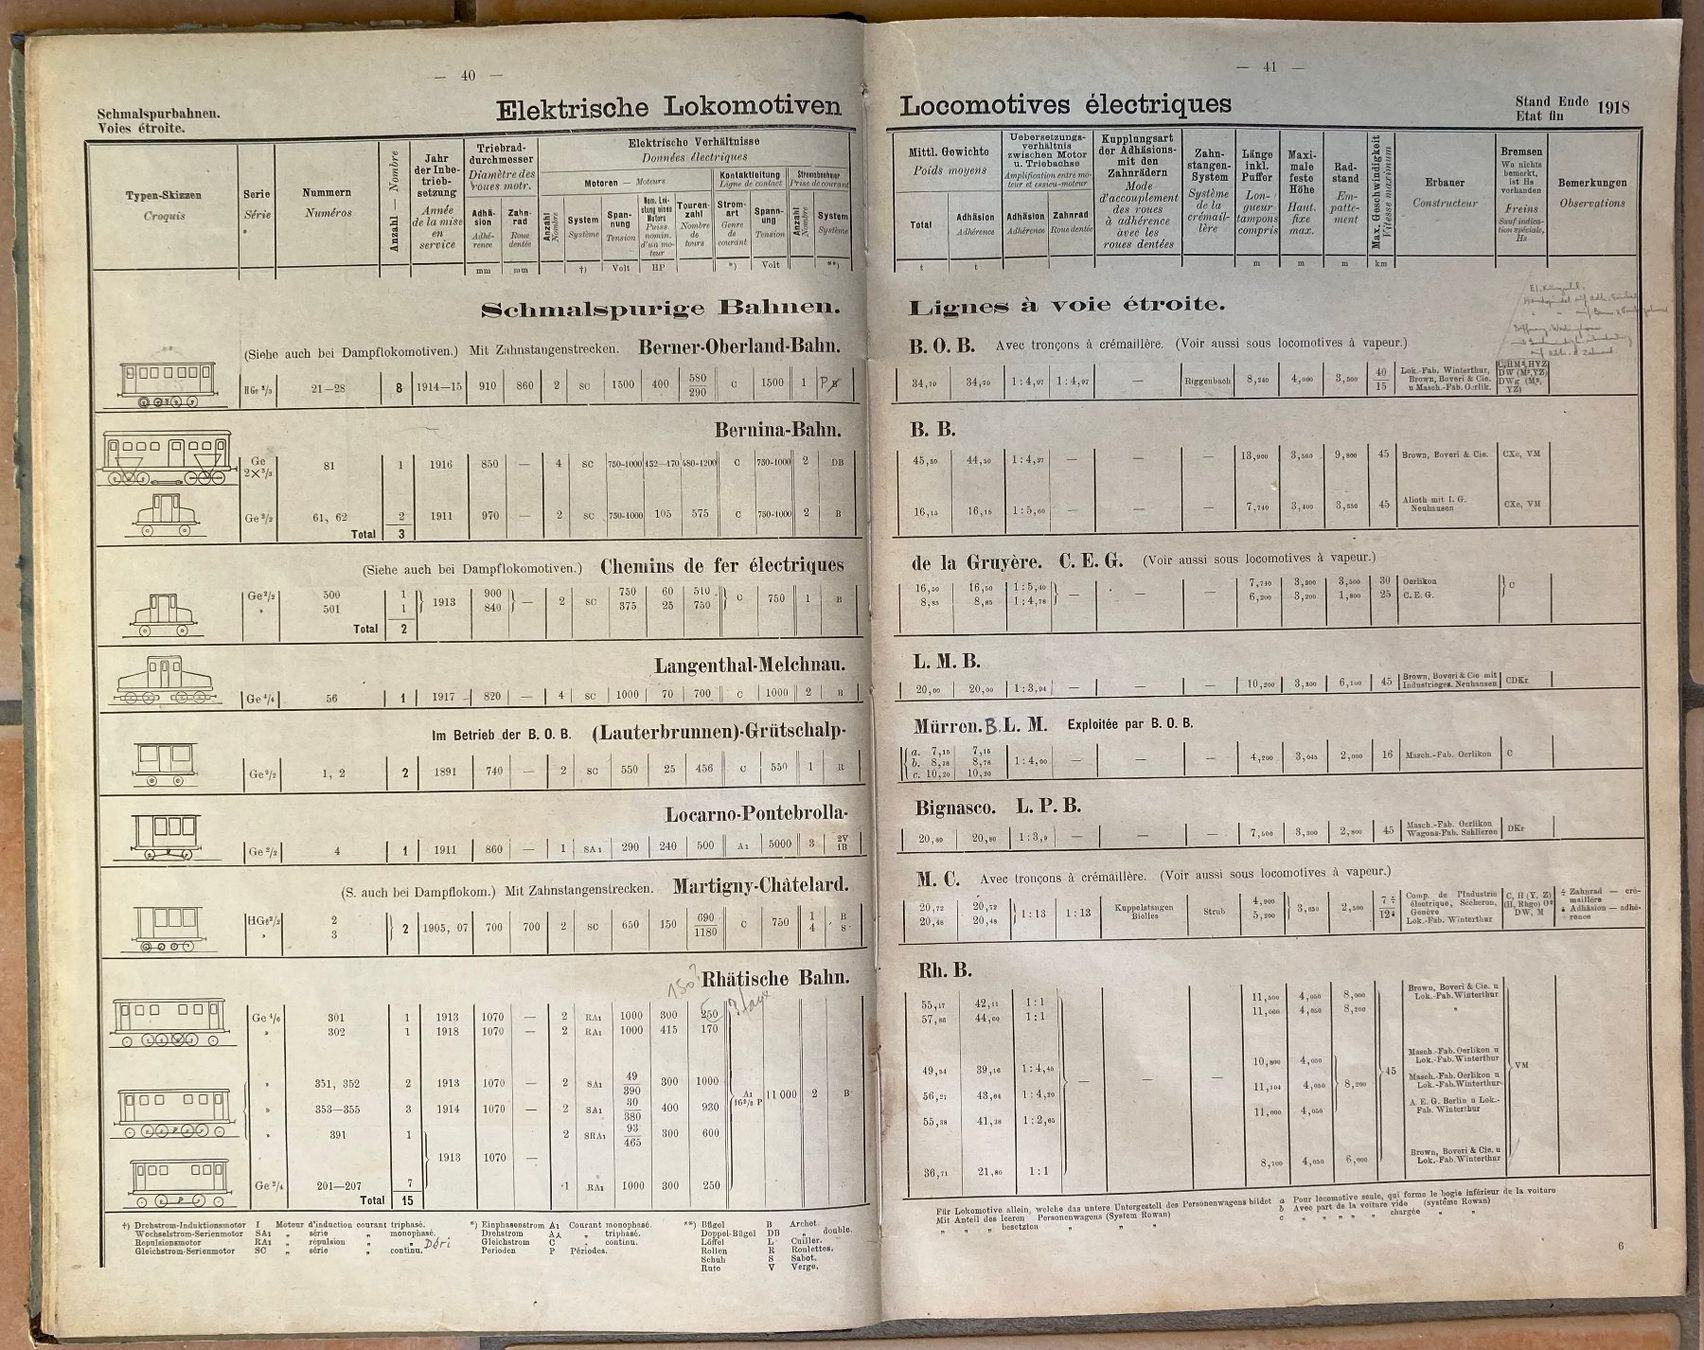 — 40 —
Schmalspurbahnen.
Voies étroite.
Elektrische Lokomotiven
Typen-Skizzen
Croquis
Serie
Série
Nummern
Numéros
Anzahl — Nombre
Jahr der Inbetriebsetzung
Année de la mise en service
Triebraddurchmesser
Diamètre des roues motr.
Adhäsion
Adhérence
mm
Zahnrad
Roue dentée
mm
Elektrische Verhältnisse
Données électriques
Motoren — Moteurs
Anzahl
Nombre
System
Système
†)
Spannung
Tension
Volt
Nom. Leistung eines Motors
Puiss. nomin. d'un moteur
HP
Tourenzahl
Nombre de tours
Kontaktleitung
Ligne de contact
Stromart
Genre de courant
*)
Spannung
Tension
Volt
Stromabnehmer
Prise de courant
Anzahl
Nombre
System
Système
**)
Schmalspurige Bahnen.
(Siehe auch bei Dampflokomotiven.) Mit Zahnstangenstrecken. Berner-Oberland-Bahn.
HGe 3/3 21—28 8 1914—15 910 860 2 SC 1500 400 580/290 C 1500 1
Bernina-Bahn.
Ge 2×3/3 81 1 1916 850 — 4 SC 750-1000 152—170 480-1200 C 750-1000 2 DB
Ge 2/2 61, 62 2 1911 970 — 2 SC 750-1000 105 575 C 750-1000 2 B
Total 3
(Siehe auch bei Dampflokomotiven.) Chemins de fer électriques
Ge 2/2 500 1 1913 900 — 2 SC 750 60 510 C 750 1 B
„ 501 1 840 375 25 750
Total 2
Langenthal-Melchnau.
Ge 4/4 56 1 1917 820 — 4 SC 1000 70 700 C 1000 2 B
Im Betrieb der B. O. B. (Lauterbrunnen)-Grütschalp-
Ge 2/2 1, 2 2 1891 740 — 2 SC 550 25 456 C 550 1 R
Locarno-Pontebrolla-
Ge 2/2 4 1 1911 860 — 1 SA1 290 240 500 A1 5000 3 2V 1B
(S. auch bei Dampflokom.) Mit Zahnstangenstrecken. Martigny-Châtelard.
HGe 2/2 2 2 1905, 07 700 700 2 SC 650 150 690/1180 C 750 1 B
„ 3 4 S
150?
Rhätische Bahn.
Ge 4/6 301 1 1913 1070 — 2 RA1 1000 300 250
„ 302 1 1918 1070 — 2 RA1 1000 415 170
„ 351, 352 2 1913 1070 — 2 SA1 49/390 300 1000
A1 16 2/3 P 11 000 2 B
„ 353—355 3 1914 1070 — 2 SA1 30/380 400 930
„ 391 1 2 SRA1 93/465 300 600
1913 1070 —
Ge 2/4 201—207 7 1 RA1 1000 300 250
Total 15
†) Drehstrom-Induktionsmotor I Moteur d'induction courant triphasé.
Wechselstrom-Serienmotor SA1 „ série „ monophasé.
Repulsionsmotor RA1 „ répulsion „ „ Déri
Gleichstrom-Serienmotor SC „ série „ continu.
*) Einphasenstrom A1 Courant monophasé.
Drehstrom A „ triphasé.
Gleichstrom C „ continu.
Perioden P Périodes.
**) Bügel B Archet.
Doppel-Bügel DB „ double.
Löffel L Cuiller.
Rollen R Roulettes.
Schuh S Sabot.
Rute V Verge.
— 41 —
Locomotives électriques
Stand Ende 1918
Etat fin
Mittl. Gewichte
Poids moyens
Total
t
Adhäsion
Adhérence
t
Uebersetzungsverhältnis zwischen Motor u. Triebachse
Amplification entre moteur et essieu-moteur
Adhäsion
Adhérence
Zahnrad
Roue dentée
Kupplungsart der Adhäsions- mit den Zahnrädern
Mode d'accouplement des roues à adhérence avec les roues dentées
Zahnstangen-System
Système de la crémaillère
Länge inkl. Puffer
Longueur tampons compris
m
Maximale feste Höhe
Haut. fixe max.
m
Radstand
Empattement
m
Max. Geschwindigkeit
Vitesse maximum
km
Erbauer
Constructeur
Bremsen
Wo nichts bemerkt, ist Hs vorhanden
Freins
Sauf indication spéciale, Hs
Bemerkungen
Observations
Lignes à voie étroite.
B. O. B. Avec tronçons à crémaillère. (Voir aussi sous locomotives à vapeur.)
34,70 34,70 1:4,07 1:4,07 — Riggenbach 8,240 4,000 3,500 40/15 Lok.-Fab. Winterthur, Brown, Boveri & Cie. u Masch.-Fab. Oerlik.
B. B.
45,50 44,50 1:4,37 — — — 13,900 3,560 9,800 45 Brown, Boveri & Cie. CXe, VM
16,15 16,15 1:5,60 — — — 7,740 3,400 3,350 45 Alioth mit I. G. Neuhausen CXe, VM
de la Gruyère. C. E. G. (Voir aussi sous locomotives à vapeur.)
16,50 16,50 1:5,40 — — — 7,740 3,800 3,500 30 Oerlikon C
8,85 8,85 1:4,78 6,200 3,200 1,800 25 C. E. G.
L. M. B.
20,00 20,00 1:3,94 — — — 10,200 3,800 6,100 45 Brown, Boveri & Cie mit Industrieges. Neuhausen CDKr
Mürren. B. L. M. Exploitée par B. O. B.
a. 7,15 7,15
b. 8,78 8,78 1:4,00 — — — 4,200 3,045 2,000 16 Masch.-Fab. Oerlikon C
c. 10,20 10,20
Bignasco. L. P. B.
20,80 20,80 1:3,9 — — — 7,500 3,300 2,800 45 Masch.-Fab. Oerlikon Wagons-Fab. Schlieren DKr
M. C. Avec tronçons à crémaillère. (Voir aussi sous locomotives à vapeur.)
20,72 20,72 1:13 1:13 Kuppelstangen Bielles Strub 4,900 3,850 2,500 7 ÷ Comp. de l'Industrie électrique, Sécheron, Genève
20,48 20,48 5,200 12 Lok.-Fab. Winterthur DW, M
÷ Zahnrad — crémaillère
Adhäsion — adhérence
Rh. B.
55,17 42,11 1:1 11,500 4,050 8,000 Brown, Boveri & Cie. u Lok.-Fab. Winterthur
57,86 44,60 1:1 11,060 4,050 8,200 „
49,54 39,16 1:4,45 10,800 4,000 Masch.-Fab. Oerlikon u Lok.-Fab. Winterthur
— — — 45 VM
56,21 43,64 1:4,20 11,104 4,050 8,200 Masch.-Fab. Oerlikon u Lok.-Fab. Winterthur
55,38 41,38 1:2,65 11,000 4,050 A. E. G. Berlin u Lok.-Fab. Winterthur
36,71 21,80 1:1 8,100 4,050 6,000 Brown, Boveri & Cie. u Lok.-Fab. Winterthur
Für Lokomotive allein, welche das untere Untergestell des Personenwagens bildet a Pour locomotive seule, qui forme le bogie inférieur de la voiture
Mit Anteil des leeren Personenwagens (System Rowan) b Avec part de la voiture vide (système Rowan)
„ „ „ besetzten „ „ „ c „ „ „ „ chargée „ „
6